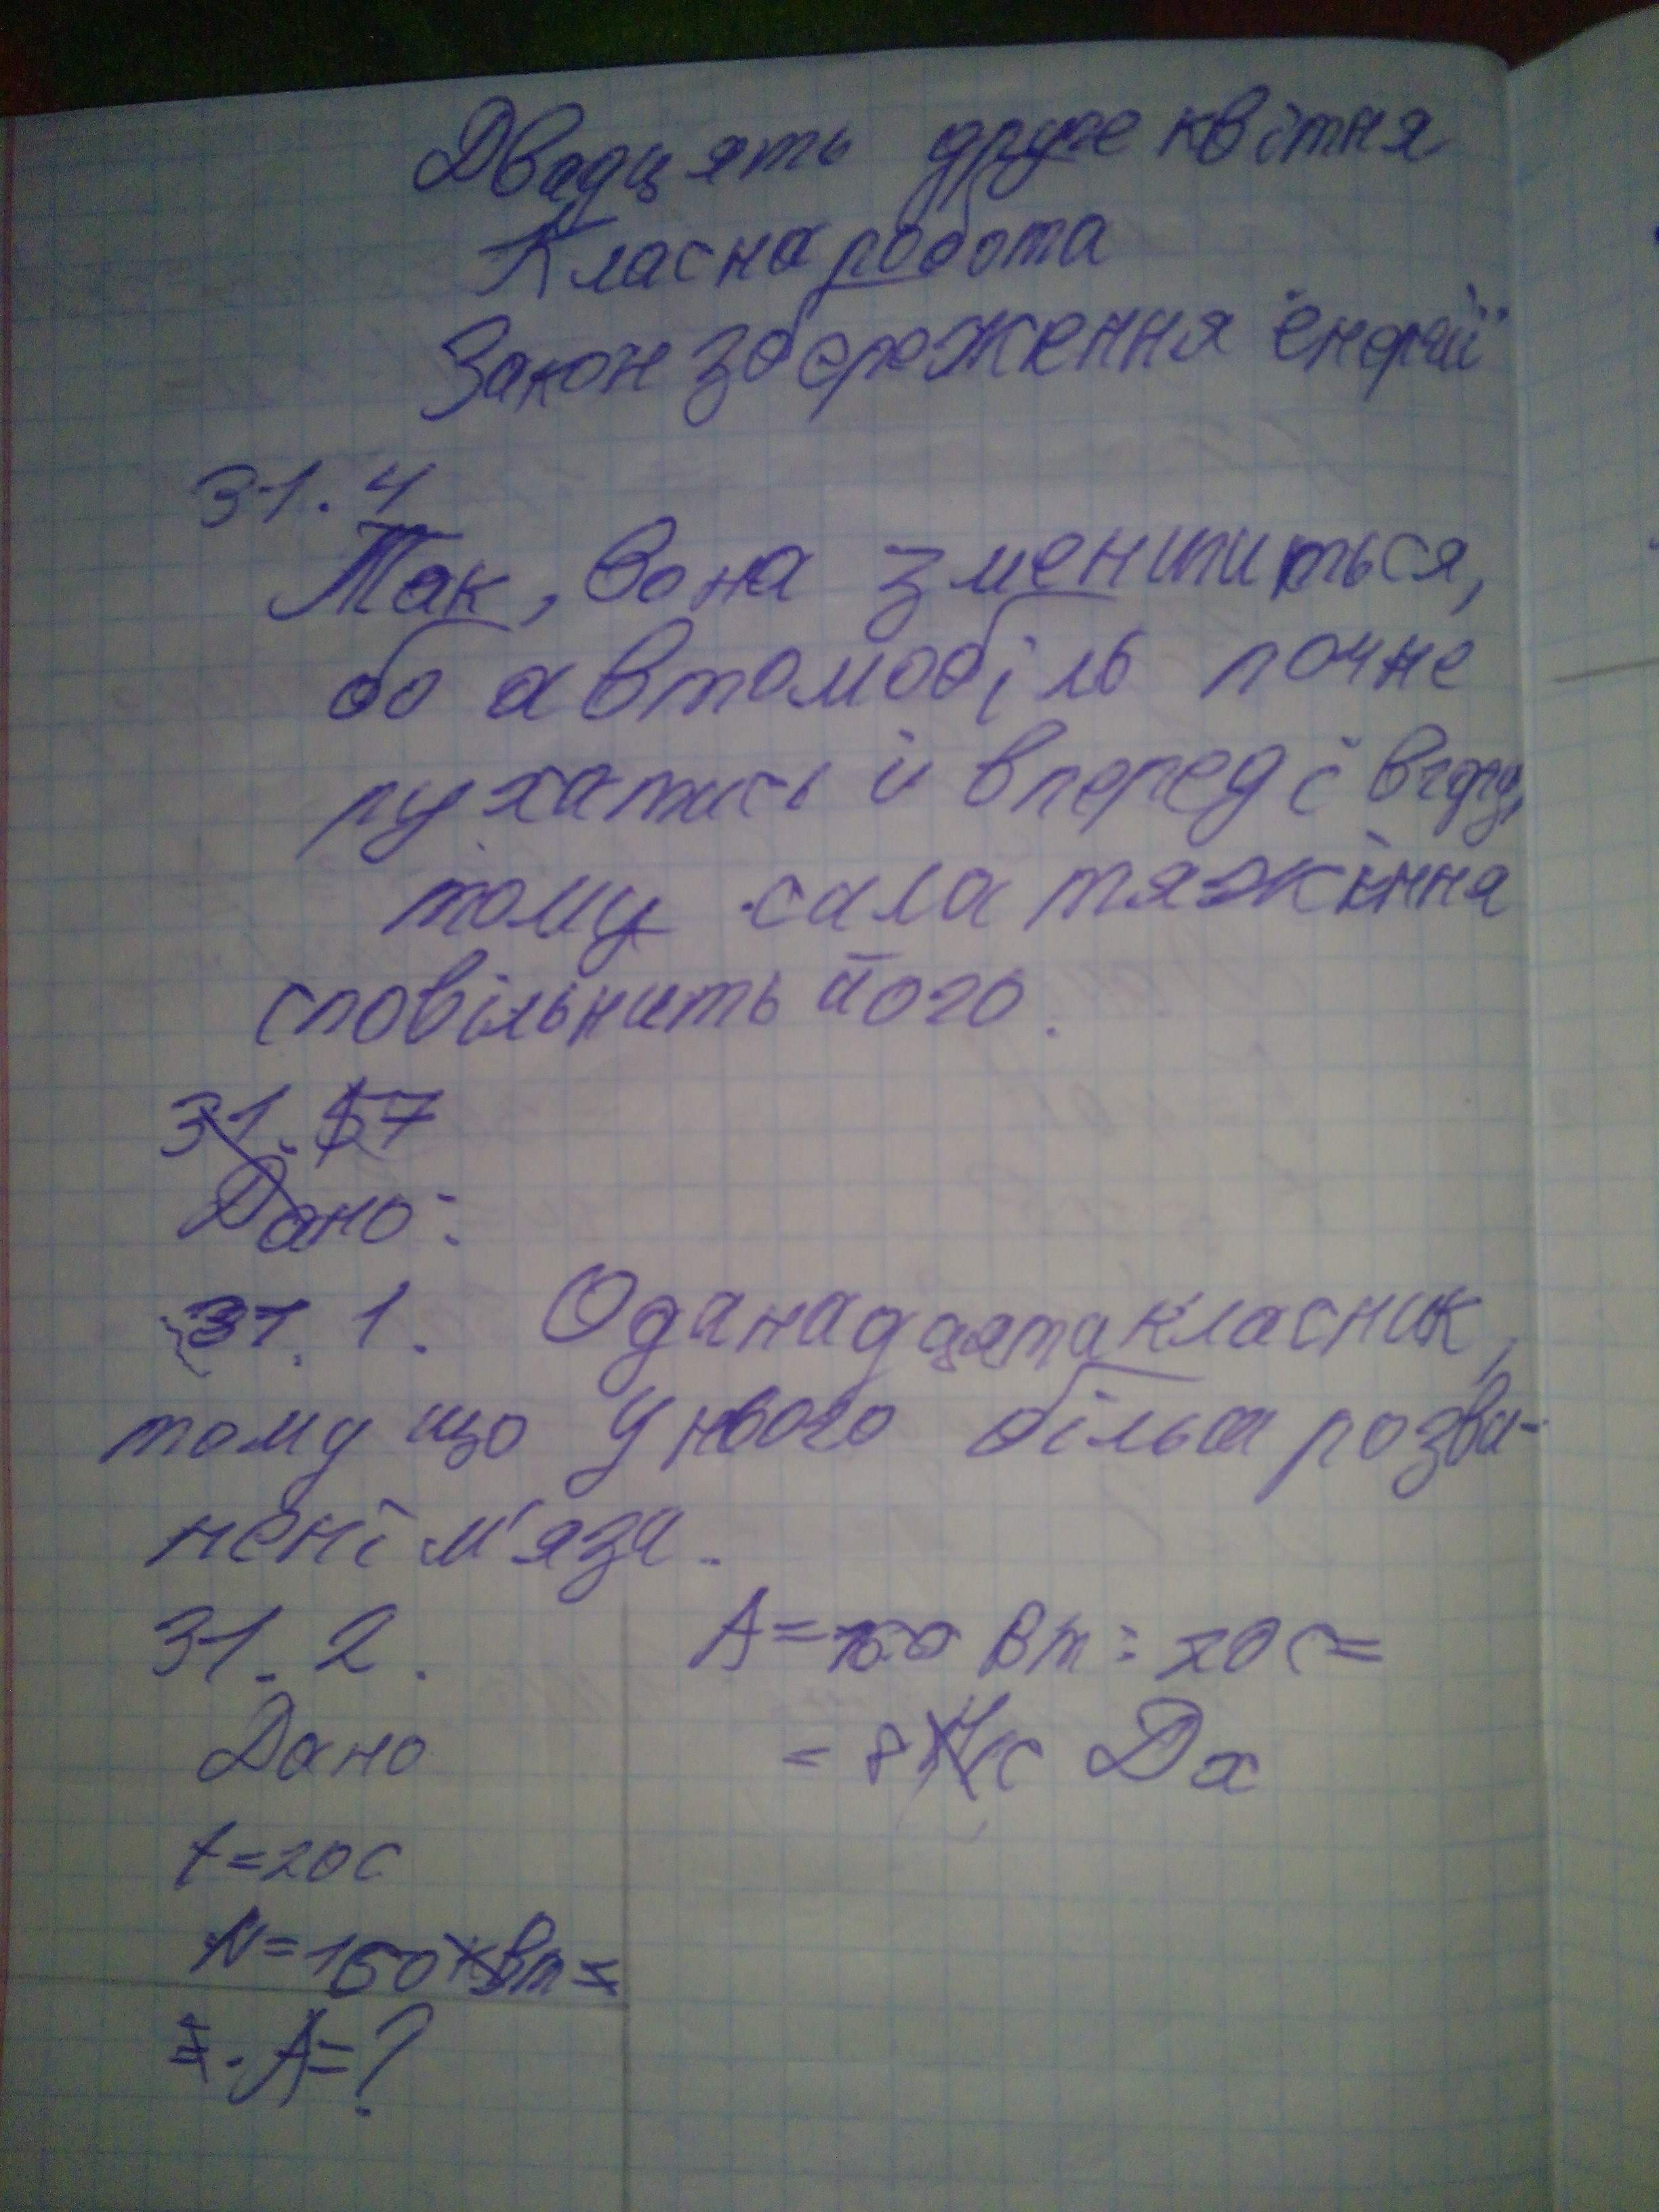 Двадцять друге квітня
Класна робота
Закон збереження енергії
31.4
Так, вона зменшиться,
бо автомобіль почне
рухатись й вперед і вгору,
тому сила тяжіння
сповільнить його.
31. 7
Дано:
31. 1. Одинадцятикласник,
тому що у нього більш розви-
нені м'язи.
31. 2.
A = 160 Вт : 20 с =
Дано
= 8 Дж
t = 20 с
N = 160 Вт
A = ?